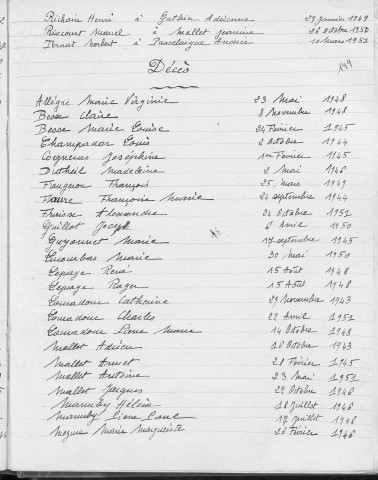 Richain Henri à Gathier Adrienne 29 janvier 1949
Riocourt Marcel à Mallet Jeannine 26 octobre 1950
Ternat Norbert à Passelaigue Andrée 10 mars 1951
149
Décès
Allègre Marie Virginie 23 Mai 1948
Besse Claire 8 novembre 1948
Besse Marie Louise 24 Février 1945
Champadar Louis 2 octobre 1944
Cognéras Joséphine 1er Février 1945
Dutheil Madeleine 2 Mai 1946
Faugnon François 25 mars 1949
Faure Françoise Marie 24 septembre 1944
Fraisse Alexandre 24 octobre 1951
Guillot Joseph 6 Avril 1950
Guyonnet Marie 17 septembre 1945
Lacombas Marie 30 mai 1950
Lepage René 15 Août 1948
Lepage Roger 15 Août 1948
Comadour Catherine 29 novembre 1943
Comadour Charles 22 Avril 1951
Comadour Marie 14 octobre 1948
Mallet Adrien 18 octobre 1943
Mallet 28 Février 1945
Mallet Antoine 23 Mai 1951
Mallet Jacques 22 octobre 1946
Hélène 18 juillet 1948
17 juillet 1948
Marie Marguerite 28 Février 1946